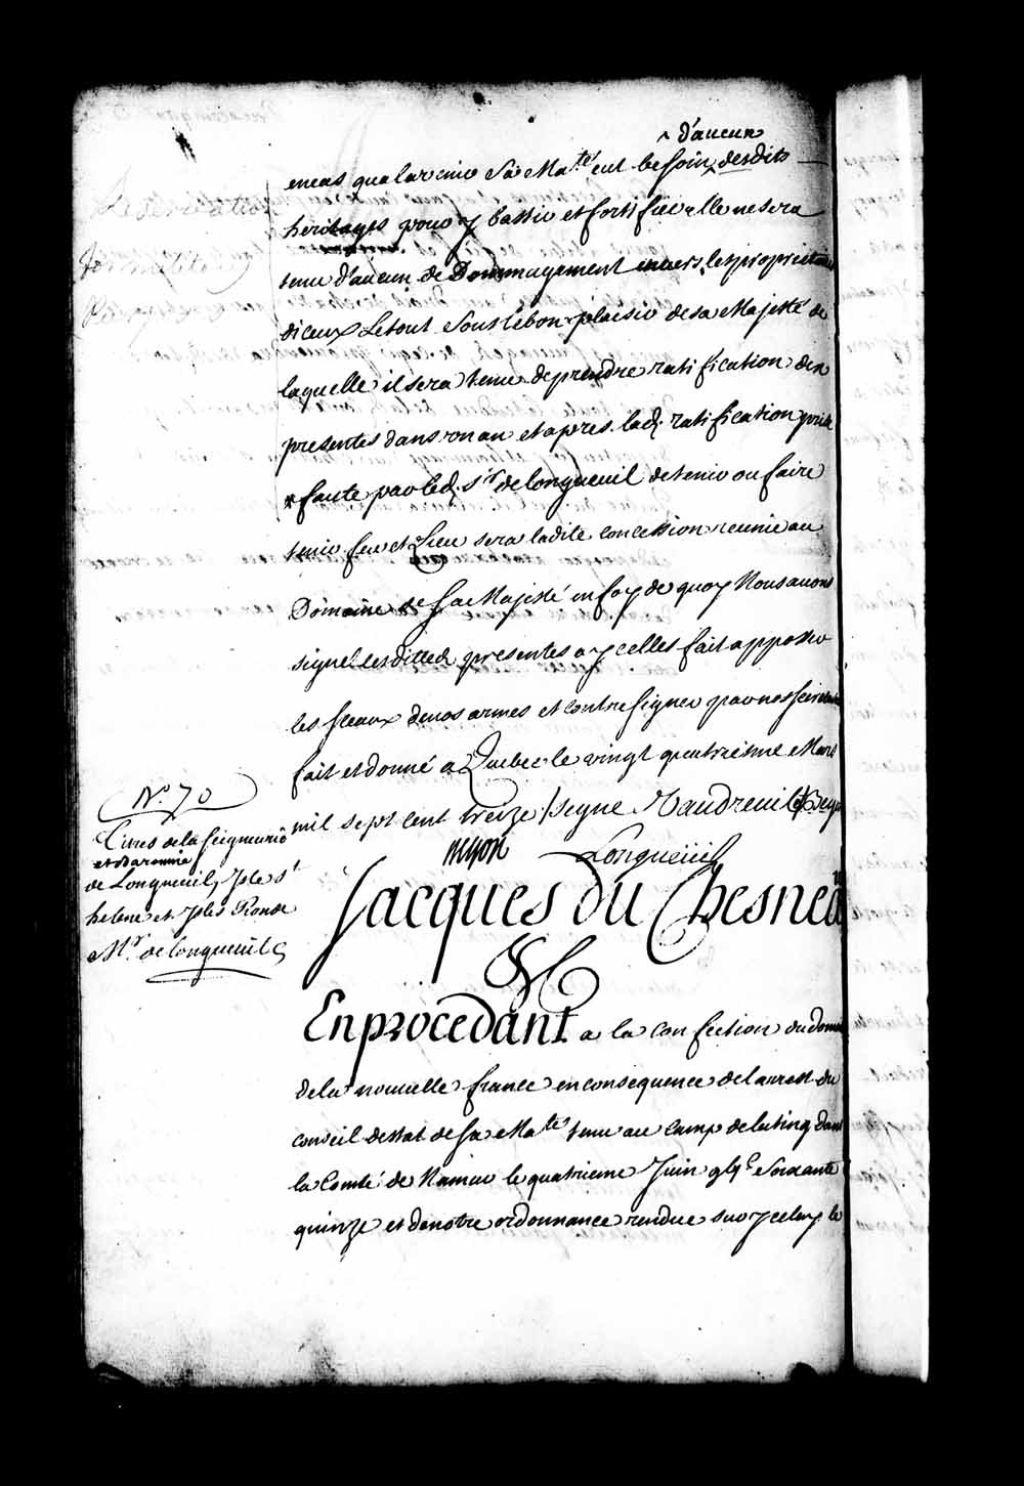 ^ d'aucun
encas qua lavenir Sa Ma.té eut besoin ^ desdits
heritages pour y bastir et fortifier elle ne sera
tenue d'aucun de Dommagement envers les proprietaires
diceux Le tout Sous le bon plaisir de sa Majesté de
laquelle il sera tenu de prendre ratification des
presentes dans un an et apres lad. ratification prise
faute par led. Sr de longueuil de tenir ou faire
tenir feu et Lieu sera ladite concession reunie au
Domaine de Sa Majesté en foy de quoy Nous avons
signé lesdittes presentes a ycelles fait apposer
les sceaux de nos armes et contresigner par nos
fait et donné a Quebec le vingt quatriesme Mars
mil sept cent treize / signe Vaudreuil
Longueüil
No. 70
Titres de la seigneurie
et baronnie
de Longueuil, Isle Ste
helene et Isle Ronde
Mr. de longueuil
Jacques du Chesneau
&c
En procedant a la confection du domaine
de la nouvelle france en consequence de l arrest du
conseil destat de sa Ma.té tenu au camp de luting dans
la Comté de Namur le quatrieme Juin gbjc Soixante
quinze et de notre ordonnance rendue sur yceluy le